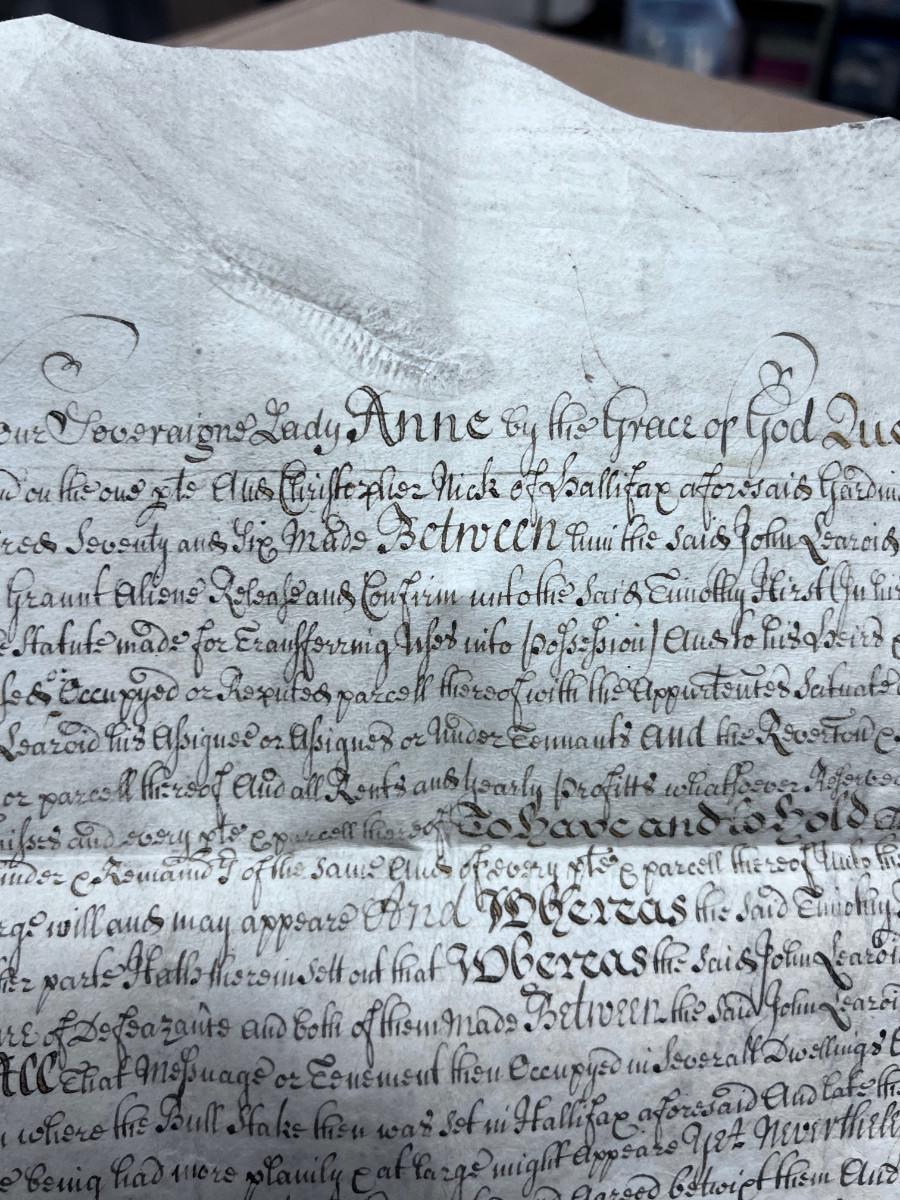 our Soveraigne Lady Anne by the Grace of God Que
on the one pte And Christopher Nick of Hallifax aforesaid Gardin
red Seventy and Six Made Between him the said John Learoid
Graunt Aliene Release and Confirm unto the said Timothy Hirst (In his
e Statute made for Transferring Uses into Possession) And to his Heirs
sed Occupyed or Reputed parcell thereof with the Appurtentes Scituate
Learoid his Assignee or Assignes or Under Tennants And the Revertion &
or parcell thereof And all Rents and yearly Profitts whatsoever Reserved
misses and every pte & parcell thereof To have and to hold
inder & Remaindr of the same And of every pte & parcell thereof Unto the
rge will and may appeare And Whereas the said Timothy
her parte Hath therein sett out that Whereas the said John Learoi
are of Defeazance and both of them Made Between the said John Learoi
All That Messuage or Tenement then Occupyed in Severall Dwellings
where the Bull Stake then was set in Hallifax aforesaid And late the
e being had more plainly & at large might Appeare Yet Neverthele
Agreed betwixt them And